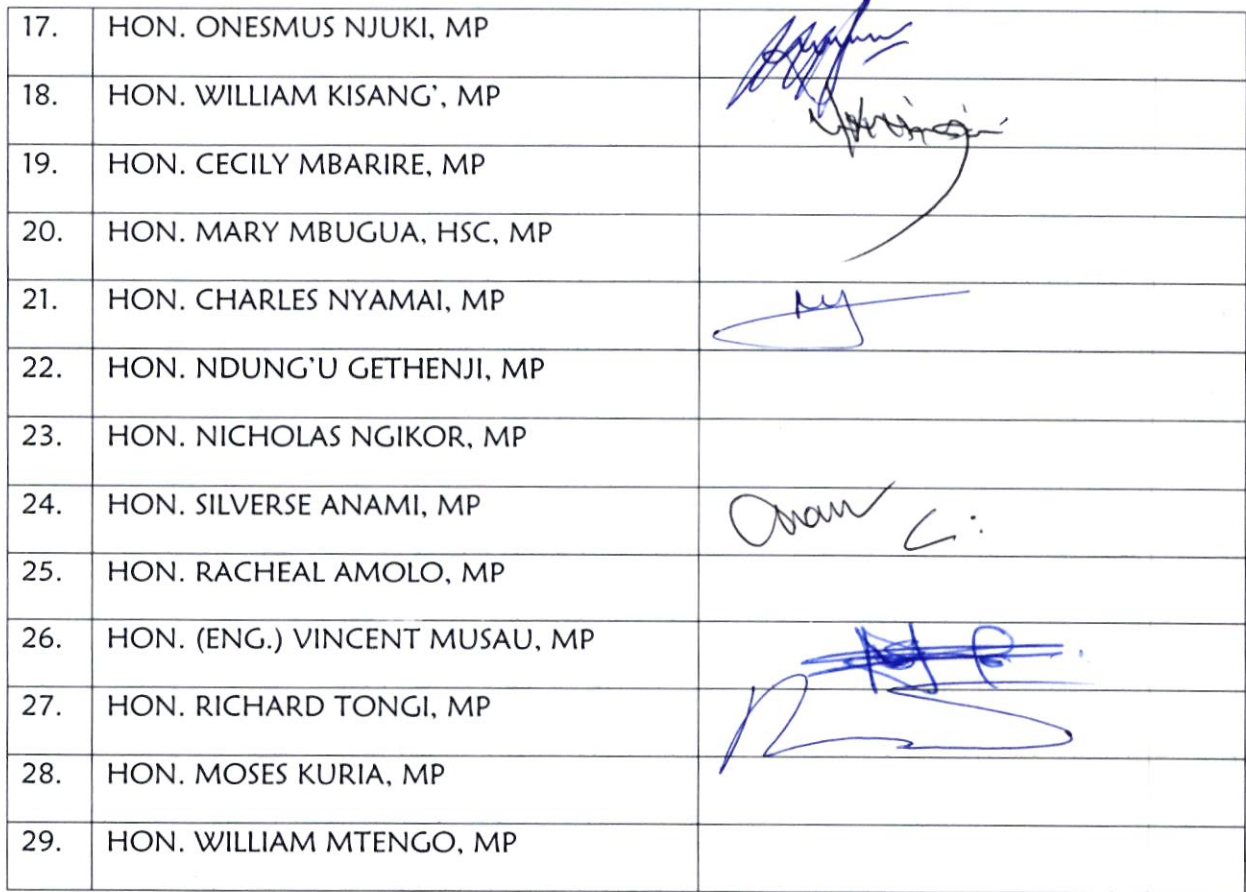 17. HON. ONESMUS NJUKI, MP
18. HON. WILLIAM KISANG', MP
19. HON. CECILY MBARIRE, MP
20. HON. MARY MBUGUA, HSC, MP
21. HON. CHARLES NYAMAI, MP
22. HON. NDUNG'U GETHENJI, MP
23. HON. NICHOLAS NGIKOR, MP
24. HON. SILVERSE ANAMI, MP
25. HON. RACHEAL AMOLO, MP
26. HON. (ENG.) VINCENT MUSAU, MP
27. HON. RICHARD TONGI, MP
28. HON. MOSES KURIA, MP
29. HON. WILLIAM MTENGO, MP